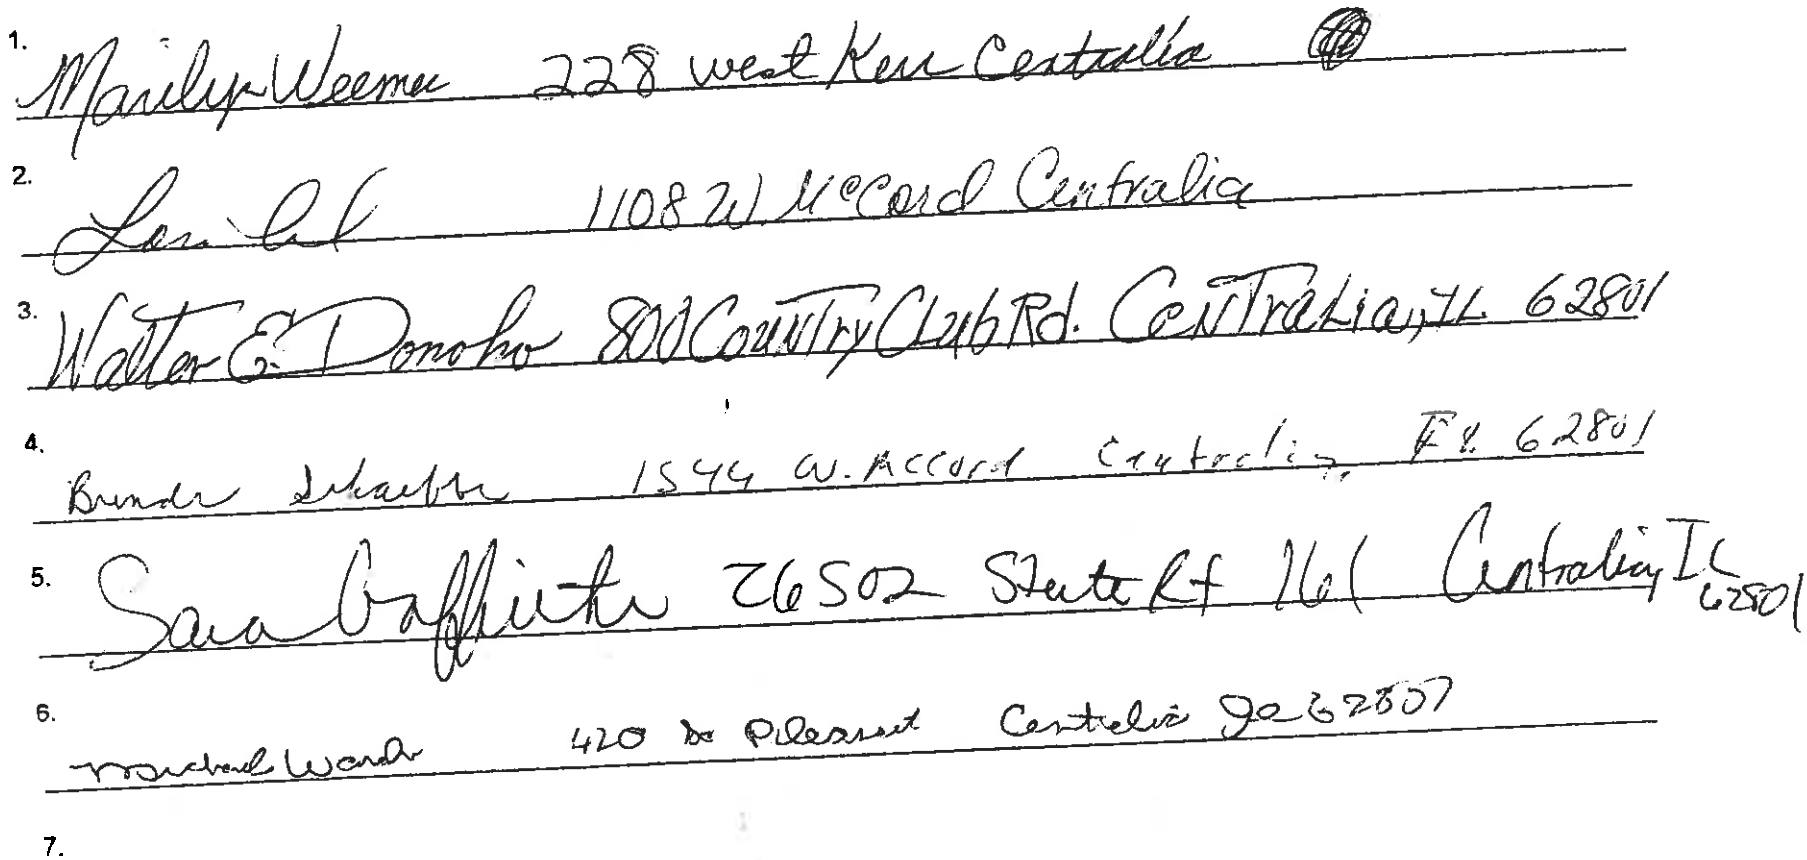 1. Marilyn Weemer 228 West Kerr Centralia
2. Lori 1108 W McCord Centralia
3. Walter E. Donoho 800 Country Club Rd. Centralia, IL 62801
4. 1544 W. McCord Centralia, Il 62801
5. Sara 26502 State Rt 161 Centralia, IL 62801
6. Michael 420 Pleasant Centralia 62801
7.